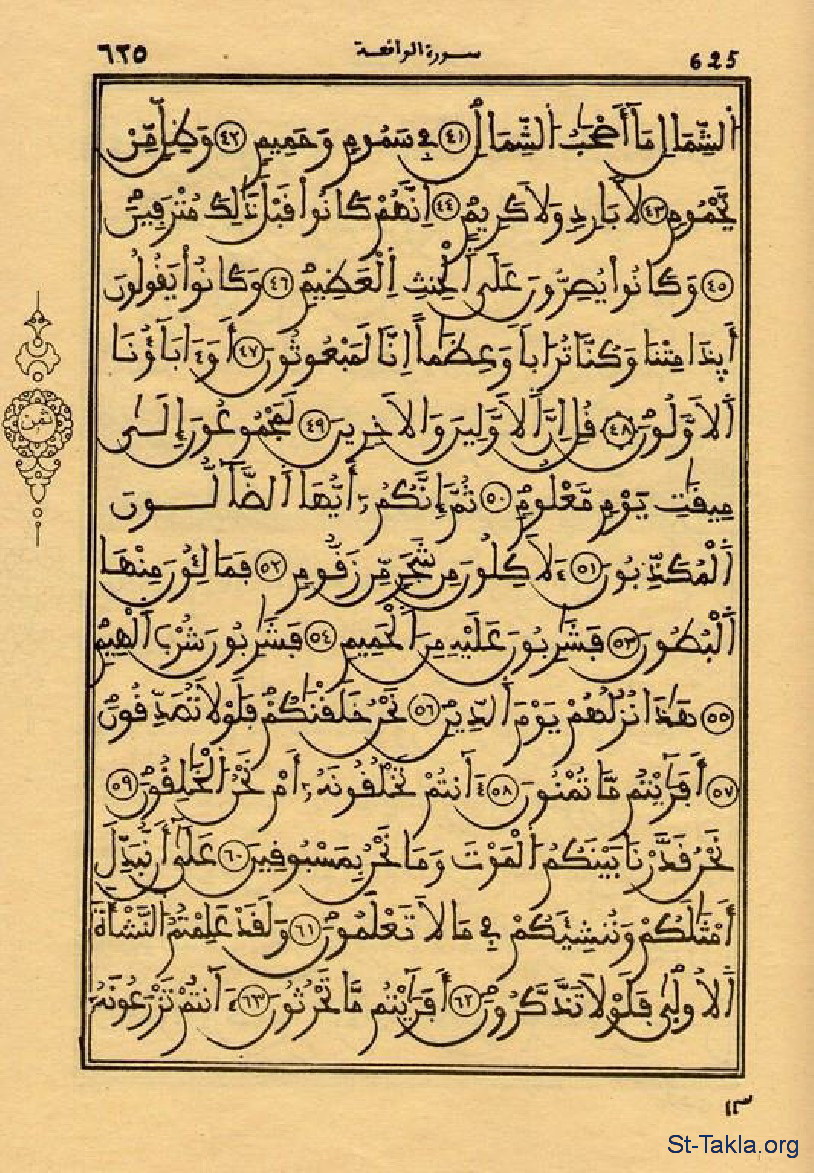 ٦٢٥ سورة الواقعة 625
اَ۬لشِّمَالِ مَآ أَصْحَٰبُ اُ۬لشِّمَالِ ٤١ فِے سَمُومٖ وَحَمِيمٖ ٤٢ وَظِلّٖ مِّنْ
يَّحْمُومٖ ٤٣ لَّا بَارِدٖ وَلَا كَرِيمٍ ٤٤ اِنَّهُمْ كَانُواْ قَبْلَ ذَٰلِكَ مُتْرَفِينَ
٤٥ وَكَانُواْ يُصِرُّونَ عَلَى اَ۬لْحِنثِ اِ۬لْعَظِيمِ ٤٦ وَكَانُواْ يَقُولُونَ
أَيِذَا مِتْنَا وَكُنَّا تُرَاباٗ وَعِظَٰماً اِنَّا لَمَبْعُوثُونَ ٤٧ أَوَ ءَابَآؤُنَا
اَ۬لَاوَّلُونَ ٤٨ قُلِ اِنَّ اَ۬لَاوَّلِينَ وَالَاخِرِينَ ٤٩ لَمَجْمُوعُونَ إِلَىٰ
مِيقَٰتِ يَوْمٖ مَّعْلُومٖ ٥٠ ثُمَّ إِنَّكُمُۥٓ أَيُّهَا اَ۬لضَّآلُّونَ
اَ۬لْمُكَذِّبُونَ ٥١ ءَلَاكِلُونَ مِن شَجَرٖ مِّن زَقُّومٖ ٥٢ فَمَالِـُٔونَ مِنْهَا
اَ۬لْبُطُونَ ٥٣ فَشَٰرِبُونَ عَلَيْهِ مِنَ اَ۬لْحَمِيمِ ٥٤ فَشَٰرِبُونَ شُرْبَ اَ۬لْهِيمِ
٥٥ هَٰذَا نُزُلُهُمْ يَوْمَ اَ۬لدِّينِ ٥٦ نَحْنُ خَلَقْنَٰكُمْ فَلَوْلَا تُصَدِّقُونَ
٥٧ أَفَرَٰٓيْتُم مَّا تُمْنُونَ ٥٨ ءَآنتُمْ تَخْلُقُونَهُۥٓ أَمْ نَحْنُ اُ۬لْخَٰلِقُونَ ٥٩
نَحْنُ قَدَّرْنَا بَيْنَكُمُ اُ۬لْمَوْتَ وَمَا نَحْنُ بِمَسْبُوقِينَ ٦٠ عَلَىٰٓ أَن نُّبَدِّلَ
أَمْثَٰلَكُمْ وَنُنشِئَكُمْ فِے مَا لَا تَعْلَمُونَ ٦١ وَلَقَدْ عَلِمْتُمُ اُ۬لنَّشْأَةَ
اَ۬لُاولَىٰ فَلَوْلَا تَذَّكَّرُونَ ٦٢ أَفَرَٰٓيْتُم مَّا تَحْرُثُونَ ٦٣ ءَآنتُمْ تَزْرَعُونَهُۥٓ
ثمن
١٣
St-Takla.org